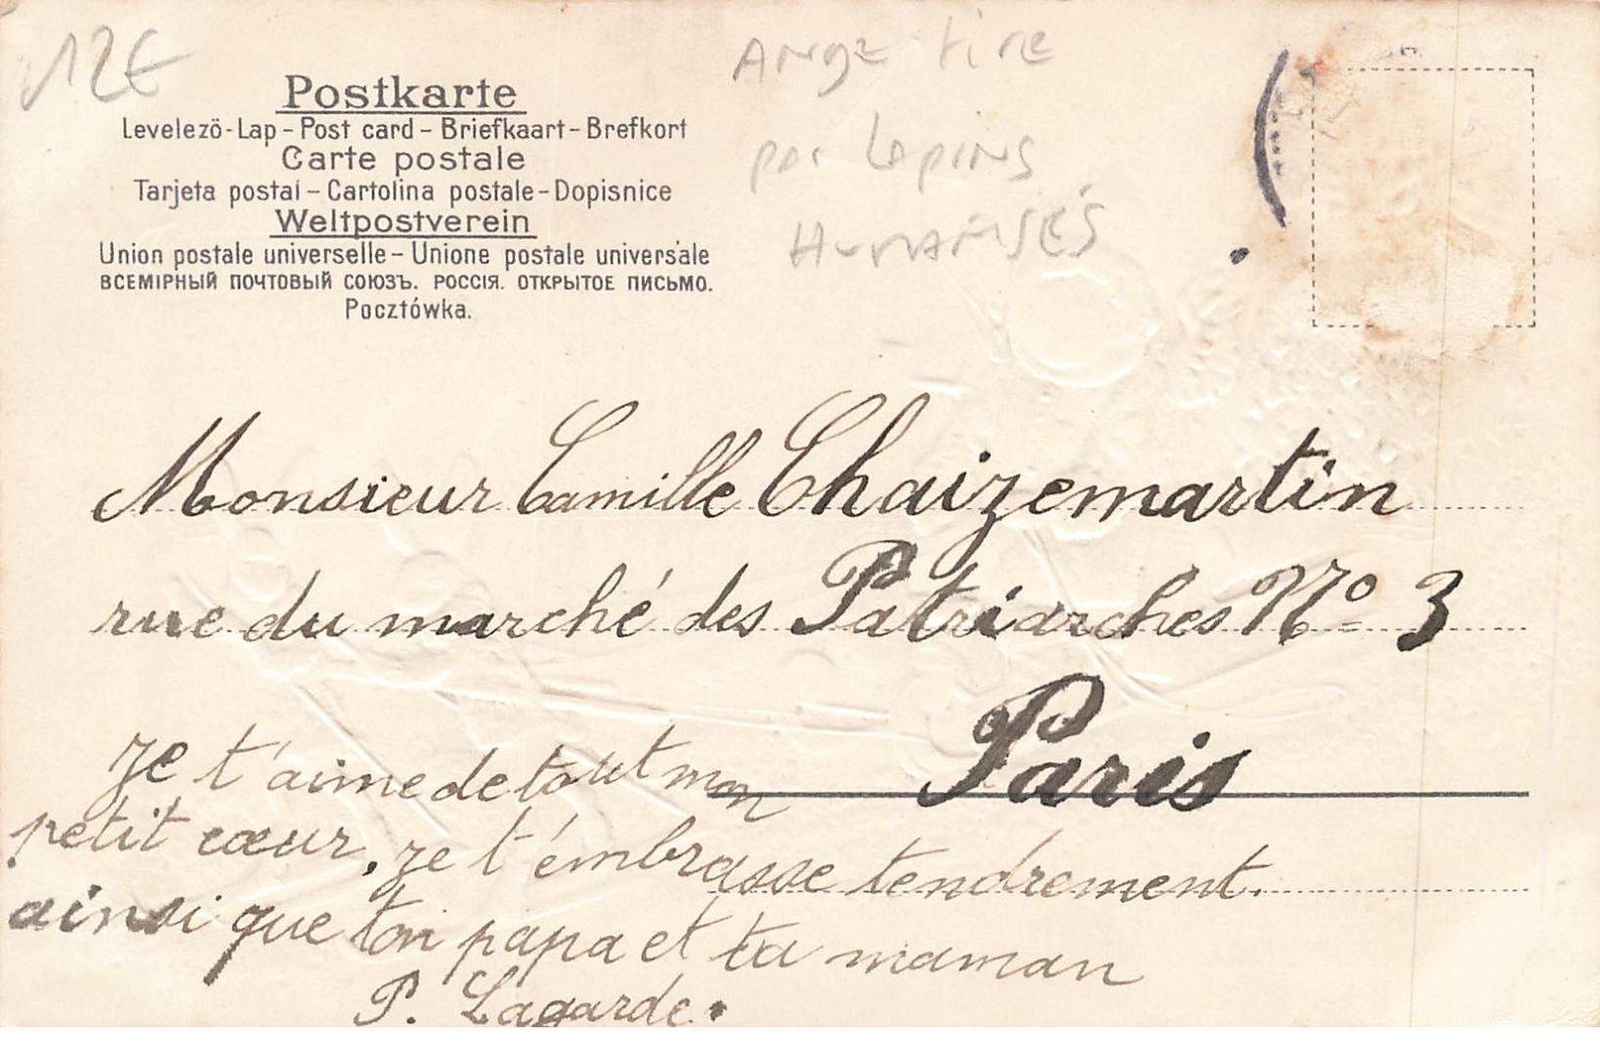 12€
Ange tiré
par lapins
HUMANISÉS
Postkarte
Levelezö-Lap – Post card – Briefkaart – Brefkort
Carte postale
Tarjeta postal – Cartolina postale – Dopisnice
Weltpostverein
Union postale universelle – Unione postale universale
ВСЕМІРНЫЙ ПОЧТОВЫЙ СОЮЗЪ. РОССІЯ. ОТКРЫТОЕ ПИСЬМО.
Pocztówka.
Monsieur Camille Chaizemartin
rue du marché des Patriarches No 3
Paris
Je t'aime de tout mon
petit cœur. je t'émbrasse tendrement.
ainsi que ton papa et ta maman
P. Lagarde.